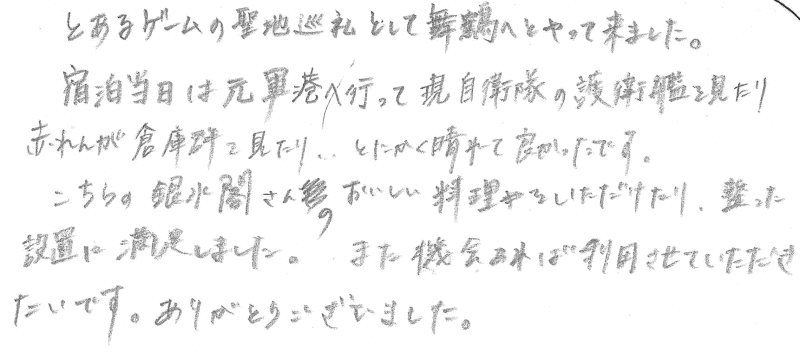 とあるゲームの聖地巡礼として舞鶴へとやって来ました。
宿泊当日は元軍港へ行って現自衛隊の護衛艦を見たり
赤れんが倉庫群を見たり、、とにかく晴れて良かったです。
こちらの銀水閣さんの おいしい料理をいただけたり、整った
設置に満足しました。 また機会あれば利用させていただき
たいです。ありがとうございました。